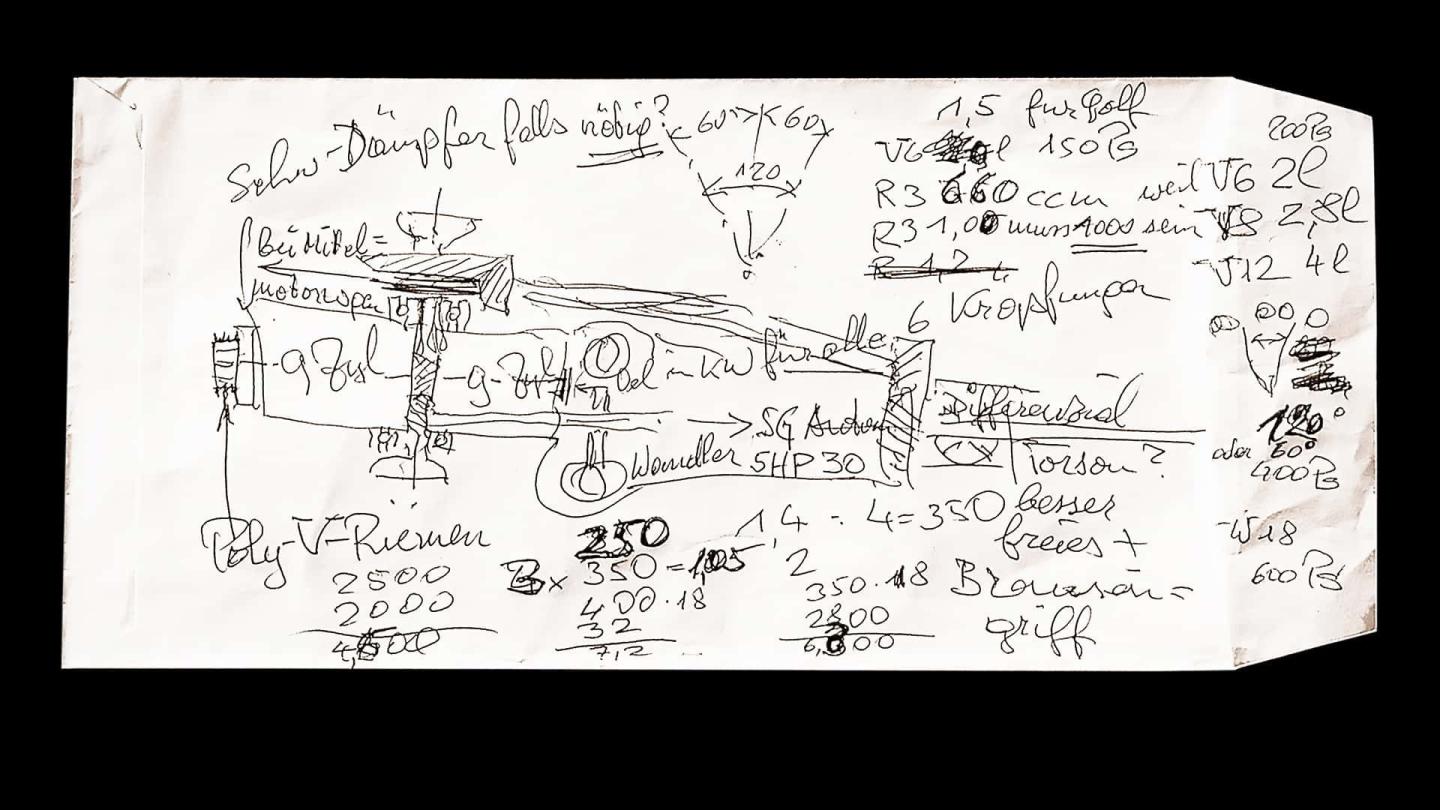 Schw-Dämpfer falls nötig?
60° 60
120
1,5 für Golf
V6 l 150 PS
R3 660 ccm weil
R3 1,00 muss 1000 sein
R 1,2 L
6 Kröpfungen
200 PS
V6 2l
V8 2,8l
V12 4l
120°
oder 60°
400 PS
W18
600 PS
Bei Mittel=
motorwagen
9 Zyl
9-Zyl
Oel in KW für alle
5G Autom
Wandler 5HP30
Differenzial
Torsen?
besser
freies +
Bremsein=
griff
Poly-V-Riemen
2500
2000
4,500
250
Bx 350 = 1,05
400 · 18
32
7,2
1,4 : 4 = 350
2
350 · 18
2800
6,300